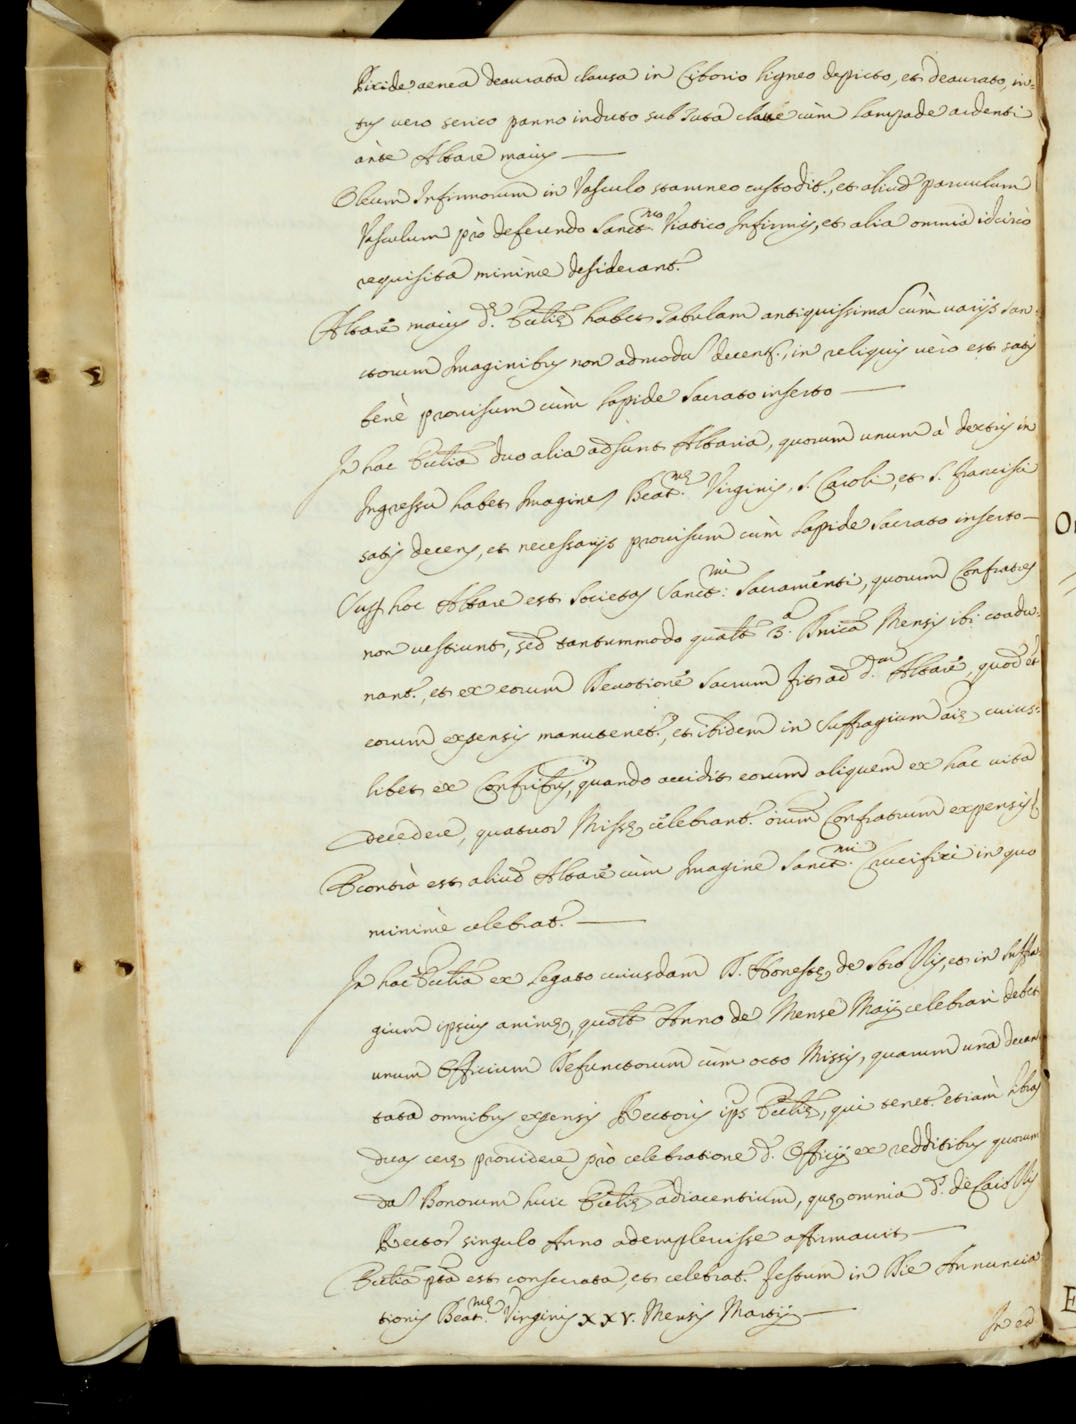 Pixide aenea deaurata clausa in Ciborio ligneo depicto, et deaurato, in-
tus vero serico panno induto sub tuta clave cùm lampade ardenti
ànte Altare maius —
Oleum Infirmorum in Vasculo stamneo custodit., et aliud parvulum
Vasculum prò deferendo Sanct.mo Viatico Infirmis, et alia omnia idcircò
requisita minimè desiderant.
Altare maius d.ę Ecclię habet tabulam antiquissimã cùm varijs San-
ctorum Imaginibus non admodũ decent., in reliquis vèro est satis
benè provisum cùm lapide Sacrato inserto —
In hac Ecclia duo alia adsunt Altaria, quorum unum à dextris in
Ingressu habet Imagines Beat.mę Virginis, S. Caroli, et S. Francisci
satis decens, et necessarijs provisum cùm Lapide Sacrato inserto —
Sup hoc Altare est Societas Sanct:mi Sacramènti, quorum Confratres
non vestiunt, sed tantummodo qualt 3.a Dnica Mensis ibi coadu-
nant., et ex eorum Devotione Sacrum fit ad d.um Altare, quod et
eorum expensis manutenet., et ibidem in Suffragium aię cuius-
libet ex Confribus, quando accidit eorum aliquem ex hac vita
decedere, quatuor Missę celebrant. oium Confratrum expensis
Econtrà est aliud Altare cùm Imagine Sanct.mi Crucifixi in quo
minimè celebrat. —
In hac Ecclia ex Legato cuiusdam D. Honestę de Strollis, et in Suffra-
gium ipsius animę, quolt Anno de Mense Maij celebrari debet
unum Officium Defunctorum cùm octo Missis, quarum una decan-
tata omnibus expensis Rectoris ips Ecclię, qui tenet. etiàm libras
duas cerę providere prò celebratione d. Officij ex redditibus quorun-
dã Bonorum huic Ecclię adiacentium, quę omnia d. de Carollis
Rector singulo Anno adimplevisse affirmavit —
Ecclia pta est consecrata, et celebrat. festum in Die Annuncia-
tionis Beat.mę Virginis XXV. Mensis Martij —
In ea